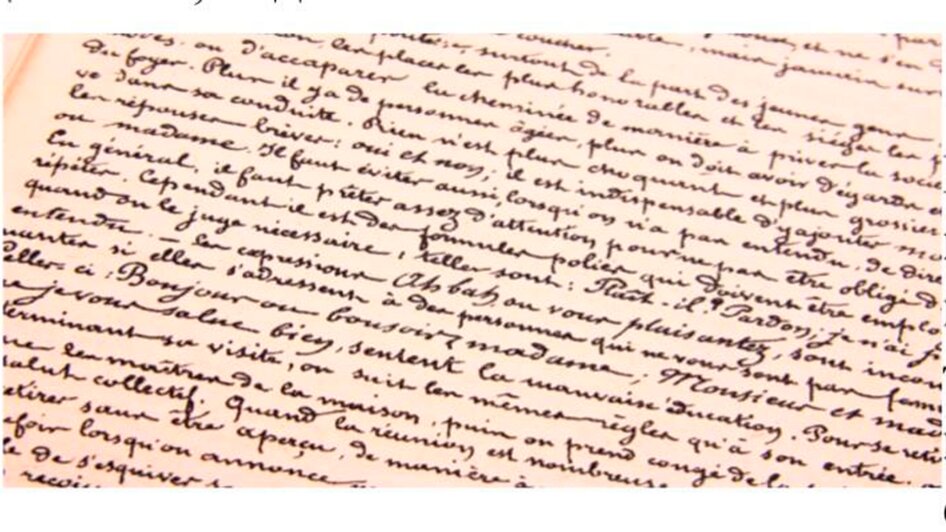 toucher.
mais jamais sur
surtout de la part des jeunes gens
placer les plus honorables et les siéger les
ou d'accaparer la cheminée de manière à priver la socié
du foyer. Plus il y a de personnes âgées, plus on doit avoir d'égards e
ve dans sa conduite. Rien n'est plus choquant et plus grossier
les réponses brèves : oui et non, il est indispensable d'y ajouter mo
ou madame. Il faut éviter aussi, lorsqu'on n'a pas entendu, de dire
En général, il faut prêter assez d'attention pour ne pas être obligé d
répéter. Cependant il est des formules polies qui doivent être emplo
quand on le juge nécessaire ; telles sont : Plaît-il ? Pardon, je n'ai p
entendu. — Les expressions Ah bah ou vous plaisantez, sont incon
si elles s'adressent à des personnes qui ne vous sont pas fami
elles-ci : Bonjour ou bonsoir madame, Monsieur et mad
e je vous salue bien, sentent la mauvaise éducation. Pour se reti
erminant sa visite, on suit les mêmes règles qu'à son entrée.
ue les maîtres de la maison, puis on prend congé de la
alut collectif. Quand la réunion est nombreuse
etirer sans être aperçu, de manière à
fois lorsqu'on annonce
le de s'esquiver